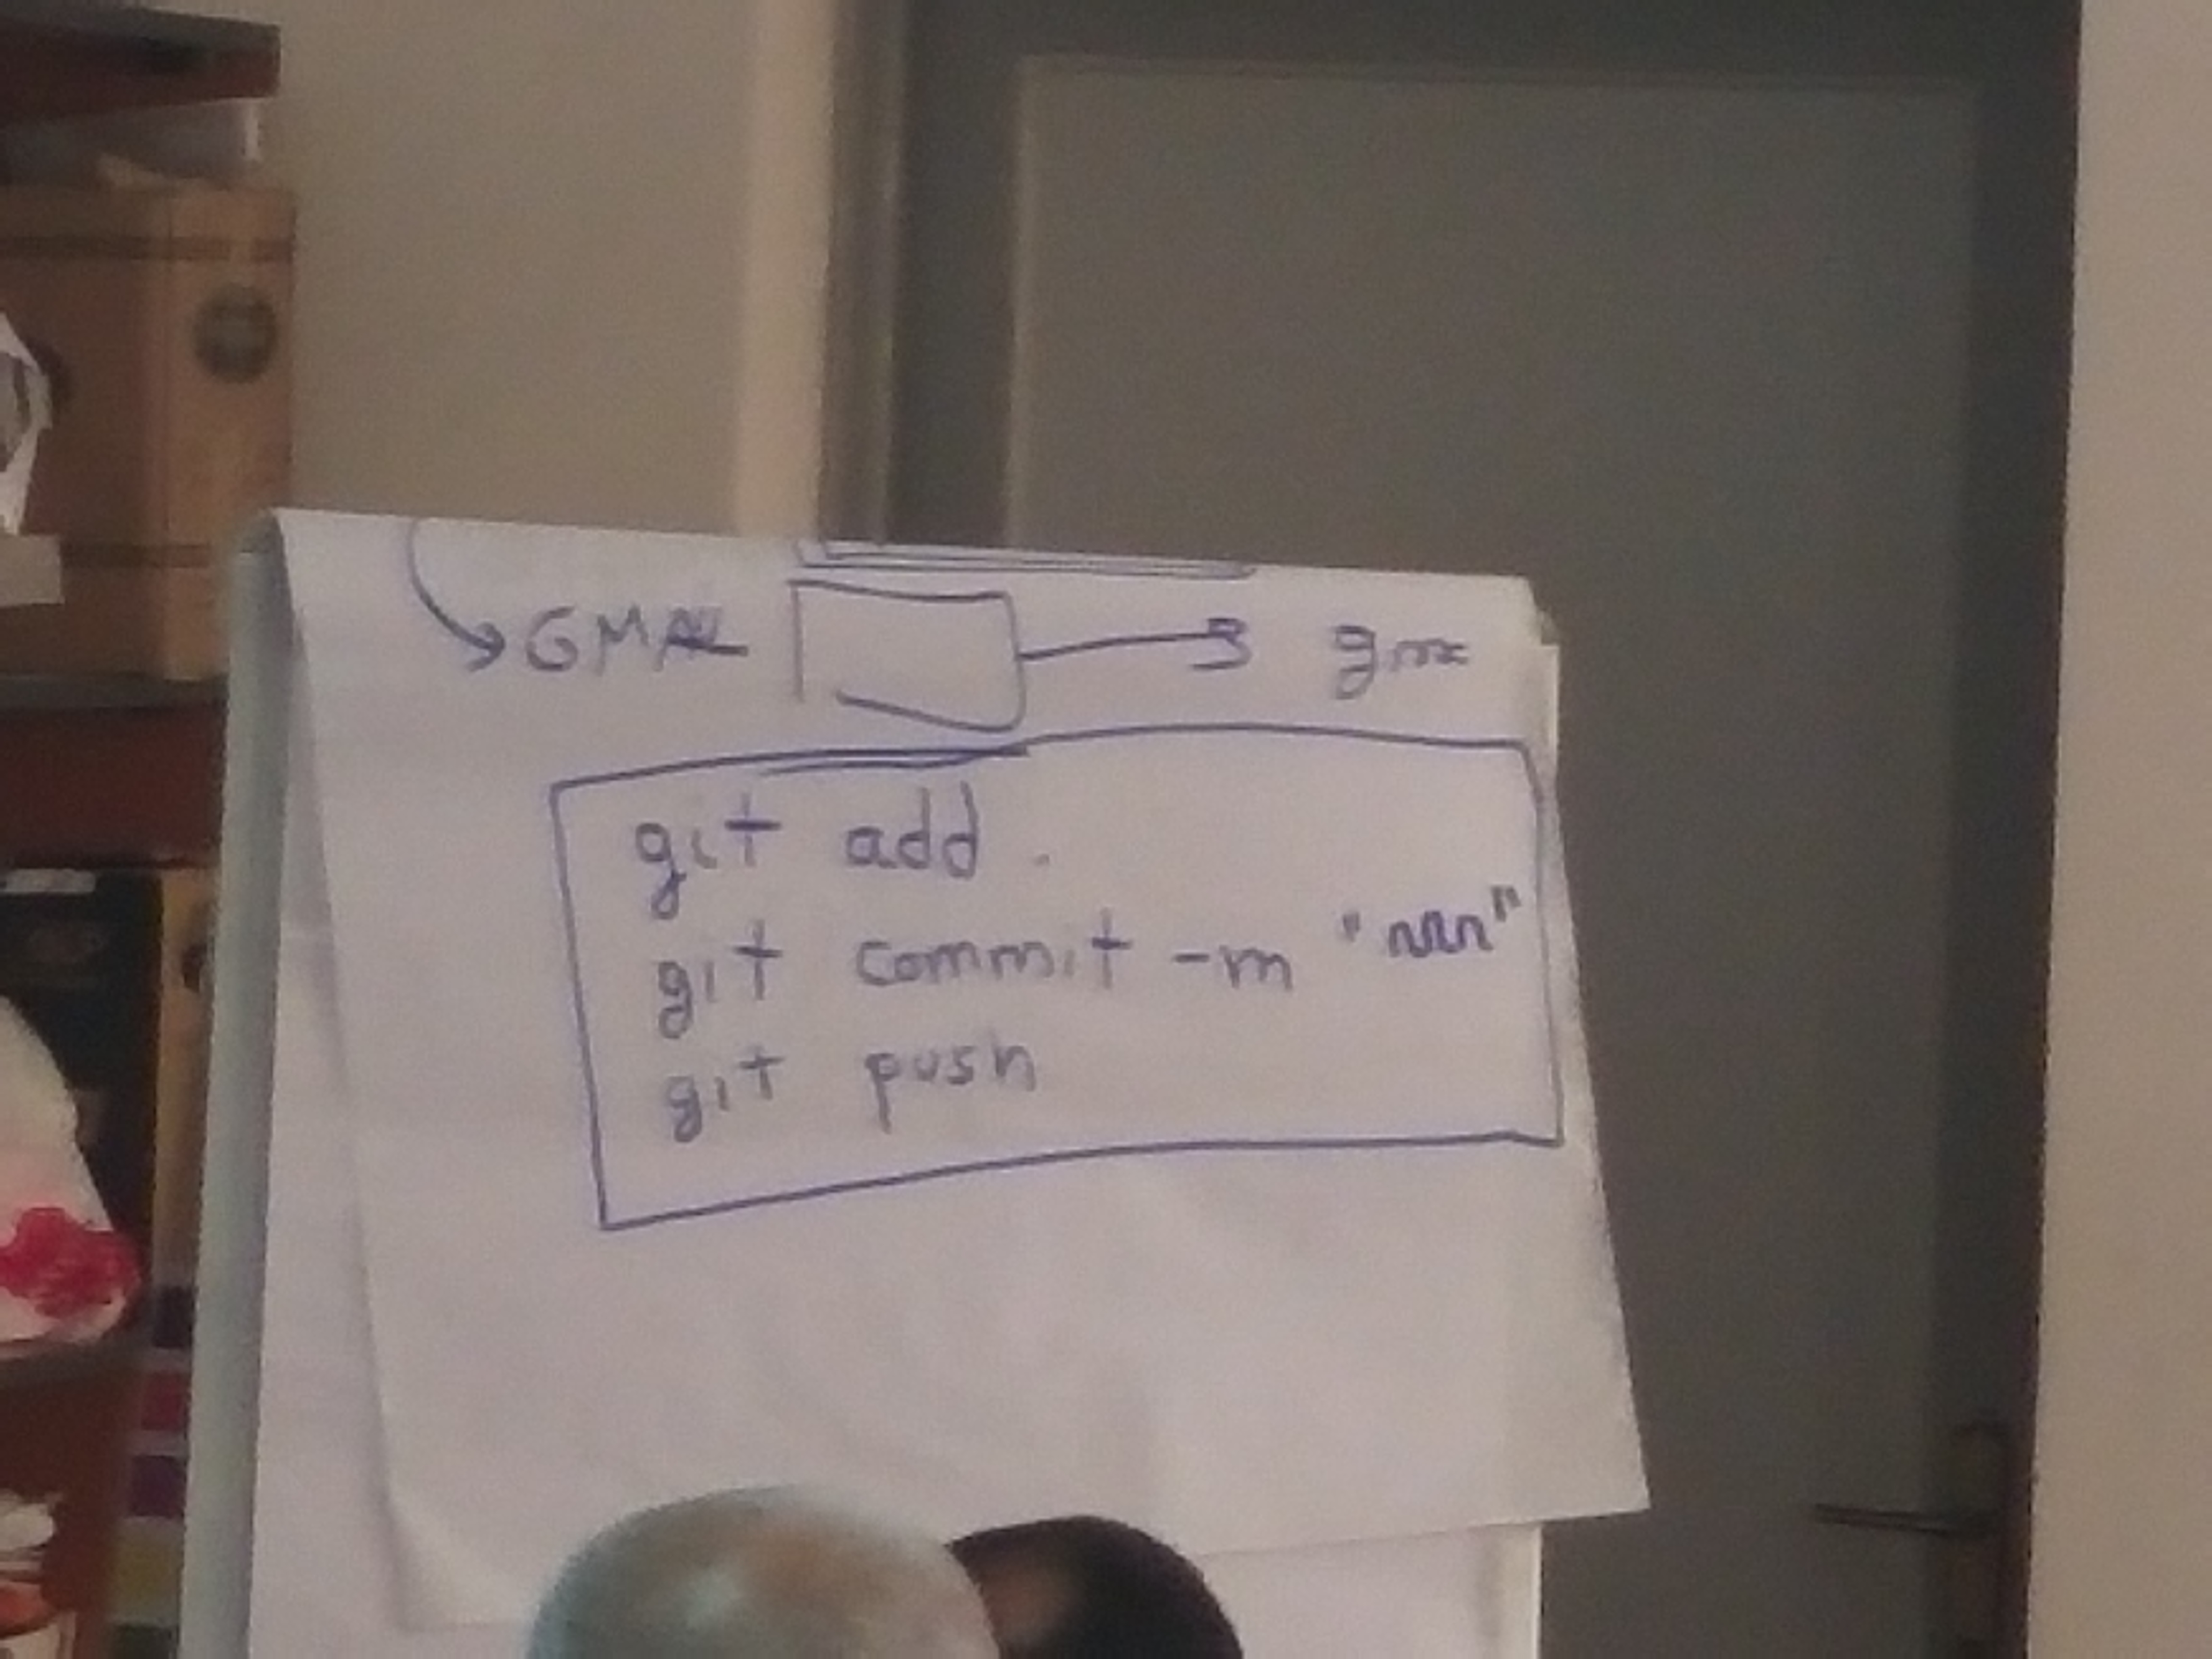 GMAIL gmx
git add .
git commit -m " "
git push